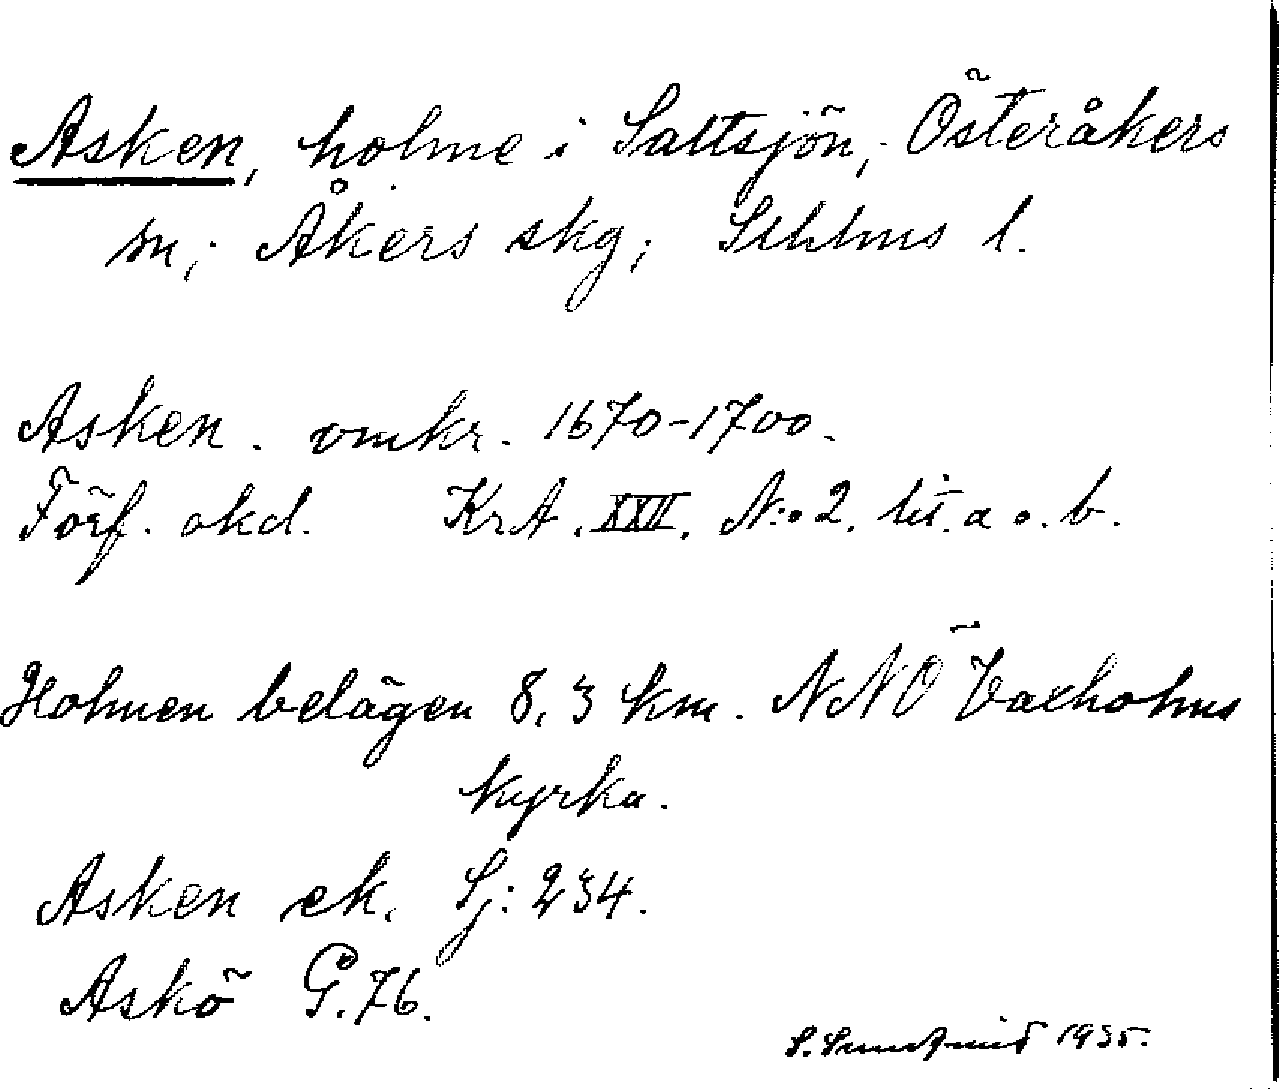 Asken, holme i Saltsjön, Österåkers
sn; Åkers skg; Sthlms l.
Asken. omkr. 1670-1700.
Förf. okd. KrA. XXII. N:o 2. lit. a o. b.
Holmen belägen 8,3 km. NNÖ Vaxholms
kyrka.
Asken ek. Sj: 234.
Askö G. 76.
S. Sundqvist 1935.